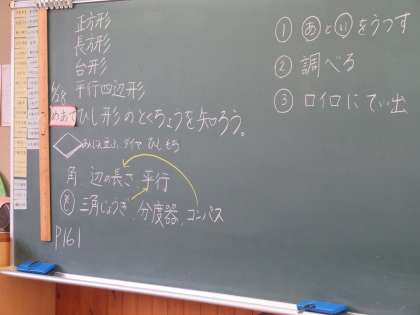 正方形
長方形
台形
平行四辺形
めあて ひし形のとくちょうを知ろう。
角、辺の長さ、平行
三角じょうぎ、分度器、コンパス
P161
① あといをうつす
② 調べる
③ ロイロにてい出